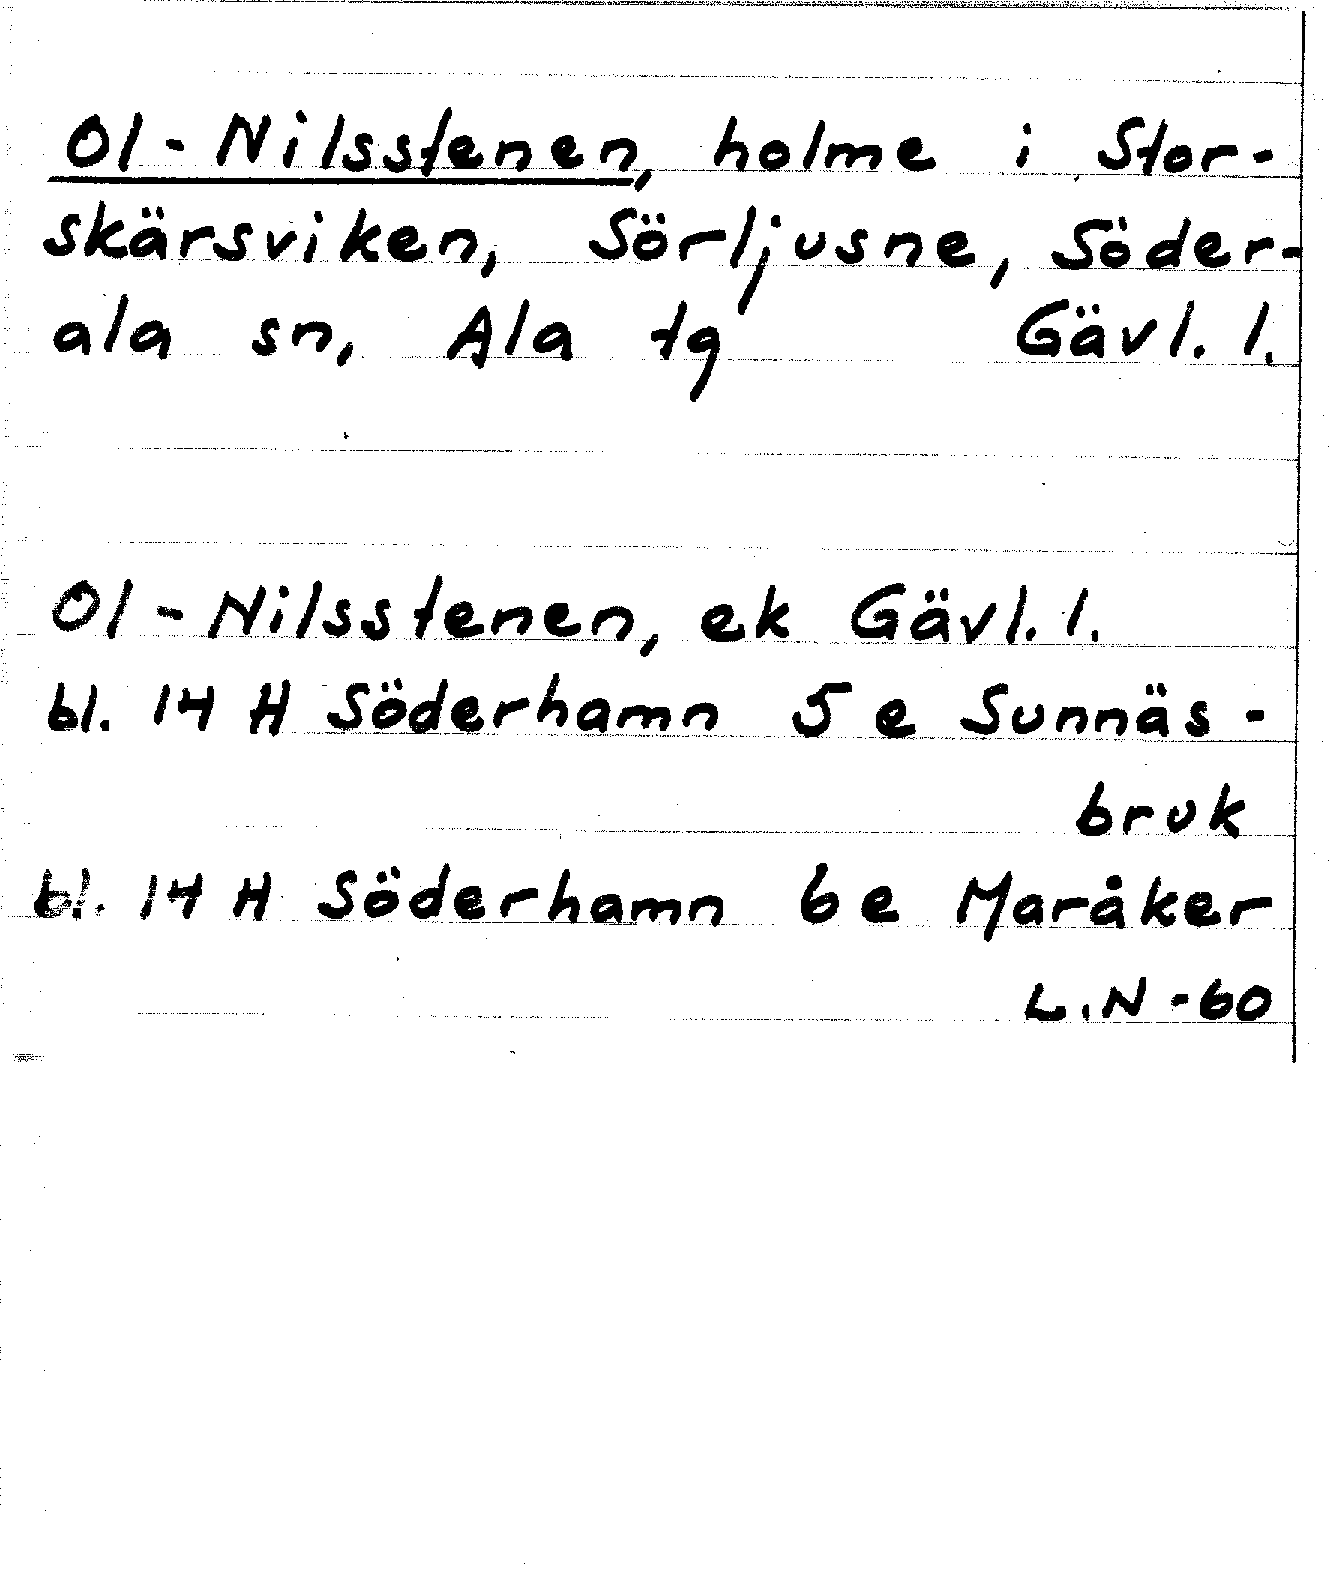 Ol-Nilsstenen, holme i Stor-
skärsviken, Sörljusne, Söder-
ala sn, Ala tg Gävl. l.
Ol-Nilsstenen, ek Gävl. l.
bl. 14 H Söderhamn 5 e Sunnäs-
bruk
bl. 14 H Söderhamn 6 e Maråker
L.N -60